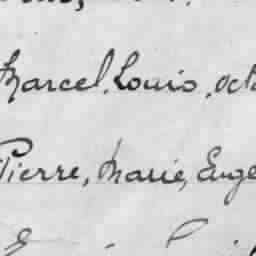 Marcel, Louis, Oct
Pierre, Marie, Euge